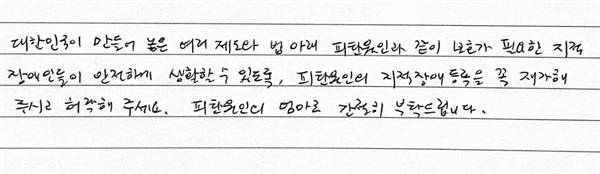 대한민국이 만들어 놓은 여러 제도와 법 아래 피탄원인과 같이 보호가 필요한 지적
장애인들이 안전하게 생활할 수 있도록, 피탄원인의 지적장애등록을 꼭 재가해
주시고 허락해 주세요. 피탄원인의 엄마로 간절히 부탁드립니다.